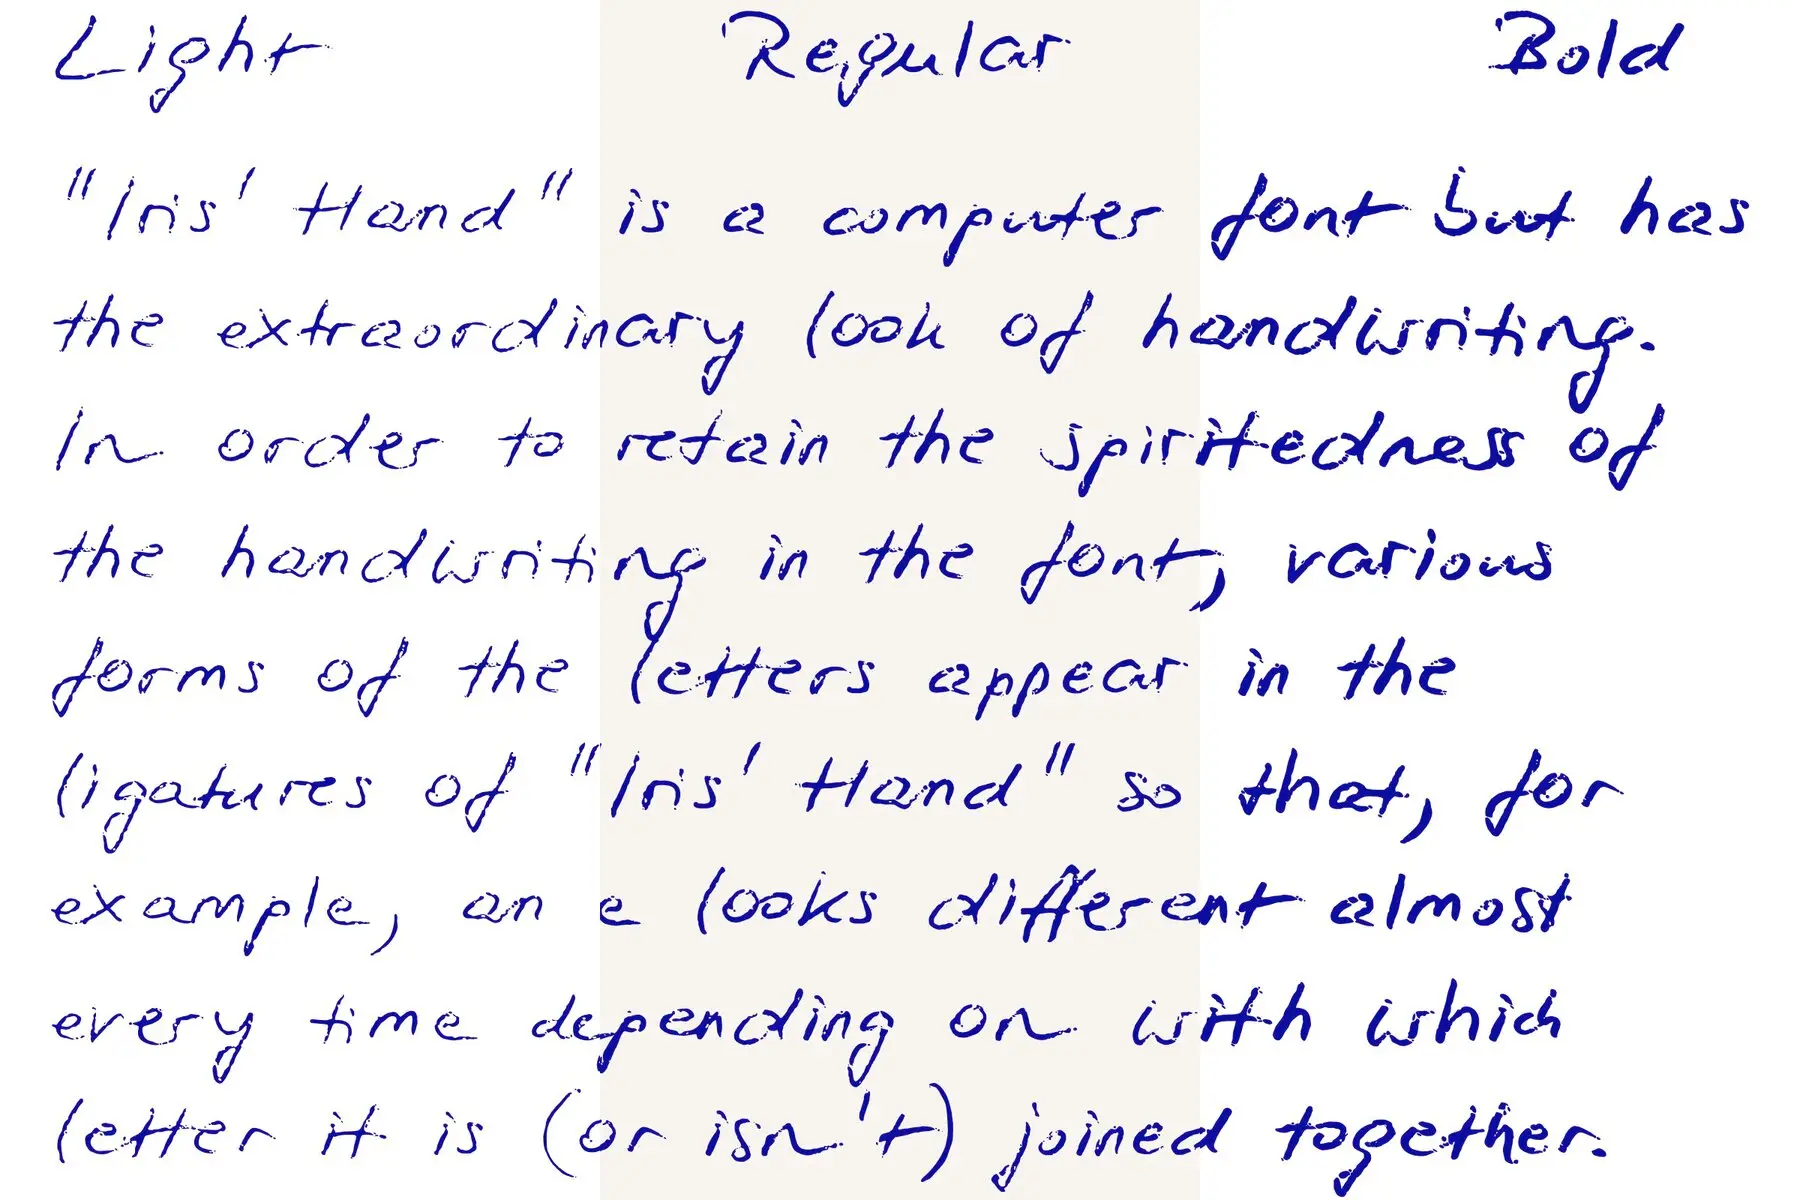 Light Regular Bold
"Iris' Hand" is a computer font but has
the extraordinary look of handwriting.
In order to retain the spiritedness of
the handwriting in the font, various
forms of the letters appear in the
ligatures of "Iris' Hand" so that, for
example, an e looks different almost
every time depending on with which
letter it is (or isn't) joined together.